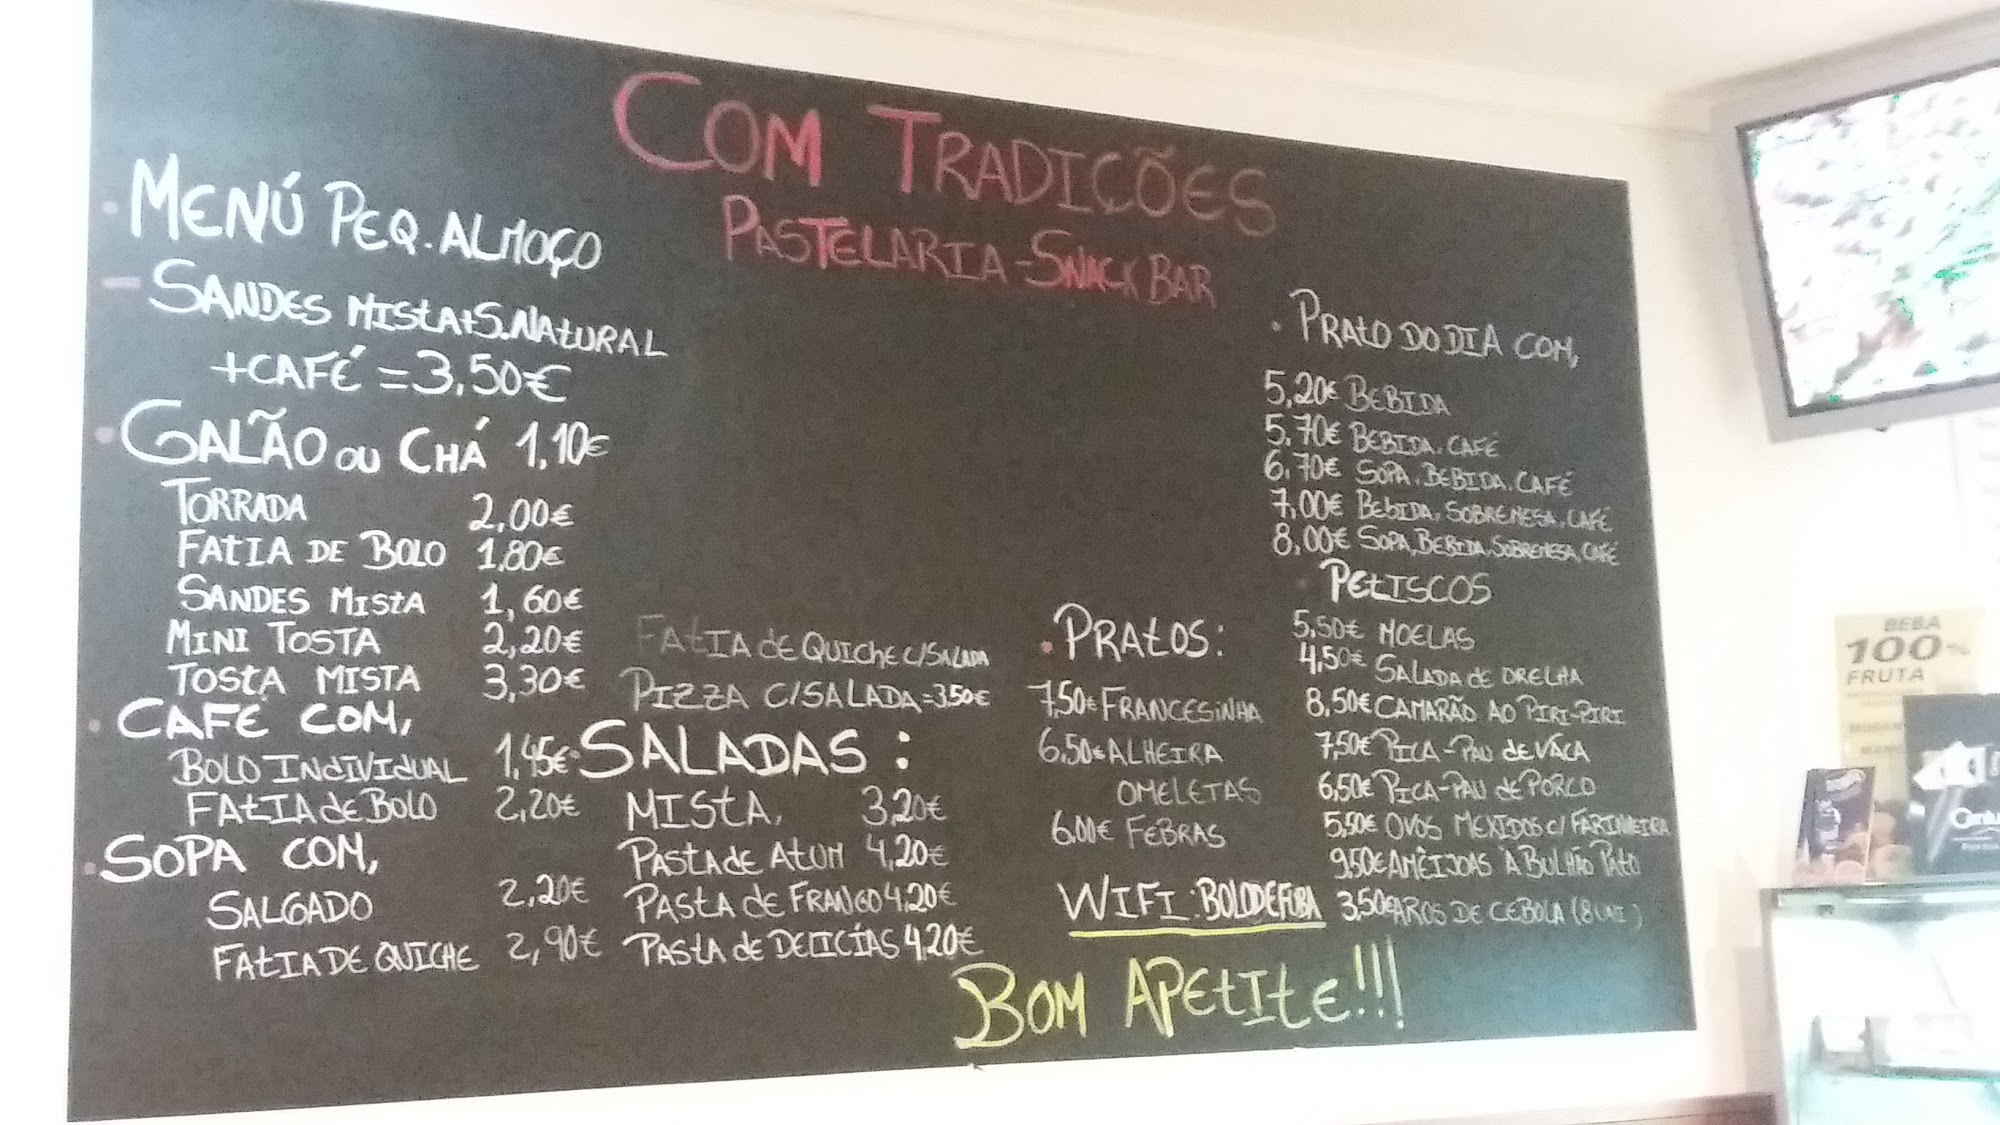 COM TRADIÇÕES
PASTELARIA-SNACK BAR
MENÚ PEQ. ALMOÇO
SANDES MISTA+S.NATURAL
+CAFÉ = 3,50€
GALÃO OU CHÁ 1,10€
TORRADA 2,00€
FATIA DE BOLO 1,80€
SANDES MISTA 1,60€
MINI TOSTA 2,20€
TOSTA MISTA 3,30€
CAFÉ COM,
BOLO INdIVIdUAL 1,45€
FATIA de BOLO 2,20€
SOPA COM,
SALGADO 2,20€
FATIA DE QUICHE 2,90€
FATIA de QUICHE C/SALADA
PIZZA C/SALADA = 3.50€
SALADAS:
MISTA, 3,20€
PASTA de ATUM 4,20€
PASTA de FRANGO 4,20€
PASTA de DELICÍAS 4,20€
PRATOS:
7,50€ FRANCESINHA
6,50€ ALHEIRA
OMELETAS
6,00€ FEBRAS
WIFI: BOLODEFUBA
PRATO DO DIA COM,
5,20€ BEBIDA
5,70€ BEBIDA, CAFÉ
6,70€ SOPA, BEBIDA, CAFÉ
7,00€ BEbIDA, SOBREMESA, CAFÉ
8,00€ SOPA, BEBIDA, SOBREMESA, CAFÉ
PETISCOS
5,50€ MOELAS
4,50€ SALADA de ORELHA
8,50€ CAMARÃO AO PIRI-PIRI
7,50€ PICA-PAU de VACA
6,50€ PICA-PAU de PORCO
5,50€ OVOS MEXIDOS C/ FARINHEIRA
9,50€ AMÊIJOAS À BULHÃO PATO
3,50€ AROS DE CEBOLA (8 UNI)
BOM APETITE!!!
BEBA
100%
FRUTA